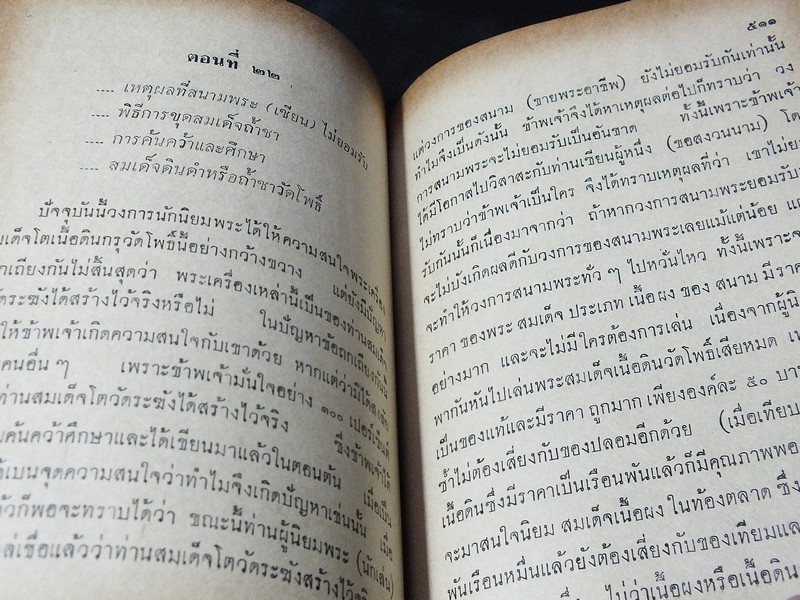 ตอนที่ ๒๒
.... เหตุผลที่สนามพระ (เซียน) ไม่ยอมรับ
.... พิธีการขุดสมเด็จถ้ำชา
.... การค้นคว้าและศึกษา
.... สมเด็จดินดำหรือถ้ำชาวัดโพธิ์
ปัจจุบันนี้วงการนักนิยมพระได้ให้ความสนใจพระเครื่อง
มเด็จโตเนื้อดินกรุวัดโพธิ์นี้อย่างกว้างขวาง แต่ยังมีปัญหา
กเถียงกันไม่สิ้นสุดว่า พระเครื่องเหล่านี้เป็นของท่านสมเด็จ
วัดระฆังได้สร้างไว้จริงหรือไม่ ในปัญหาข้อถกเถียงกันนี้
ให้ข้าพเจ้าเกิดความสนใจกับเขาด้วย หากแต่ว่ามิได้สงสัย
คนอื่น ๆ เพราะข้าพเจ้ามั่นใจอย่าง ๑๐๐ เปอร์เซ็นต์
ท่านสมเด็จโตวัดระฆังได้สร้างไว้จริง ซึ่งข้าพเจ้าได้
นค้นคว้าศึกษาและได้เขียนมาแล้วในตอนต้น เมื่อเบื้อง
ได้เบนจุดความสนใจว่าทำไมจึงเกิดปัญหาเช่นนั้น เมื่อ
ล้วก็พอจะทราบได้ว่า ขณะนี้ท่านผู้นิยมพระ (นักเล่น)
ล่เชื่อแล้วว่าท่านสมเด็จโตวัดระฆังสร้างไว้จริ
๕๑๑
แต่วงการของสนาม (ขายพระอาชีพ) ยังไม่ยอมรับกันเท่านั้น
ทำไมจึงเป็นดังนั้น ข้าพเจ้าจึงได้หาเหตุผลต่อไปก็ทราบว่า วง
การสนามพระจะไม่ยอมรับเป็นอันขาด ทั้งนี้เพราะข้าพเจ้า
ได้มีโอกาสไปวิสาสะกับท่านเซียนผู้หนึ่ง (ขอสงวนนาม) โด
ไม่ทราบว่าข้าพเจ้าเป็นใคร จึงได้ทราบเหตุผลที่ว่า เขาไม่ย
รับกันนั้นก็เนื่องมาจากว่า ถ้าหากวงการสนามพระยอมรับ
จะไม่บังเกิดผลดีกับวงการของสนามพระเลยแม้แต่น้อย แ
จะทำให้วงการสนามพระทั่ว ๆ ไปหวั่นไหว ทั้งนี้เพราะจ
ราคา ของพระ สมเด็จ ประเภท เนื้อ ผง ของ สนาม มี ราค
อย่างมาก และจะไม่มีใครต้องการเล่น เนื่องจากผู้นิ
พากันหันไปเล่นพระสมเด็จเนื้อดินวัดโพธิ์เสียหมด เ
เป็นของแท้และมีราคา ถูกมาก เพียงองค์ละ ๕๐ บาร
ซ้ำไม่ต้องเสี่ยงกับของปลอมอีกด้วย (เมื่อเทียบ
เนื้อดินซึ่งมีราคาเป็นเรือนพันแล้วก็มีคุณภาพพอ
จะมาสนใจนิยม สมเด็จเนื้อผง ในท้องตลาด ซึ่ง
พันเรือนหมื่นแล้วยังต้องเสี่ยงกับของเทียมแล
ไม่ว่าเนื้อผงหรือเนื้อดิน